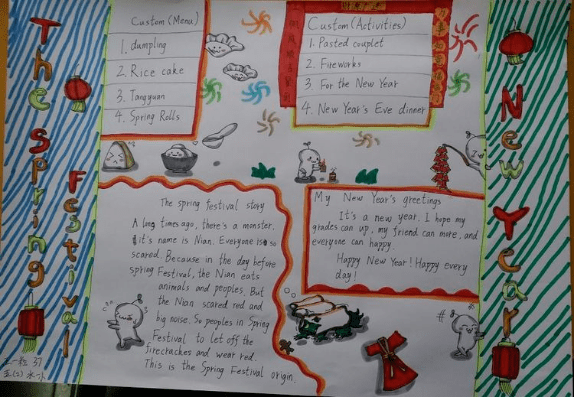 The Spring Festival
Custom (Menu)
1. dumpling
2. Rice cake
3. Tangyuan
4. Spring Rolls
Custom (Activities)
1. Pasted couplet
2. Fireworks
3 For the New Year
4. New Year's Eve dinner
New Year
The spring festival story
A long times ago, there's a monster.
it's name is Nian. Everyone is so
scared. Because in the day before
spring Festival, the Nian eats
animals and peoples. But
the Nian scared red and
big noise. So peoples in Spring
Festival to let off the
firecrackes and wear red.
This is the Spring Festival origin.
My New Year's greetings
It's a new year. I hope my
grades can up, my friend can more, and
everyone can happy.
Happy New Year! Happy every
day!